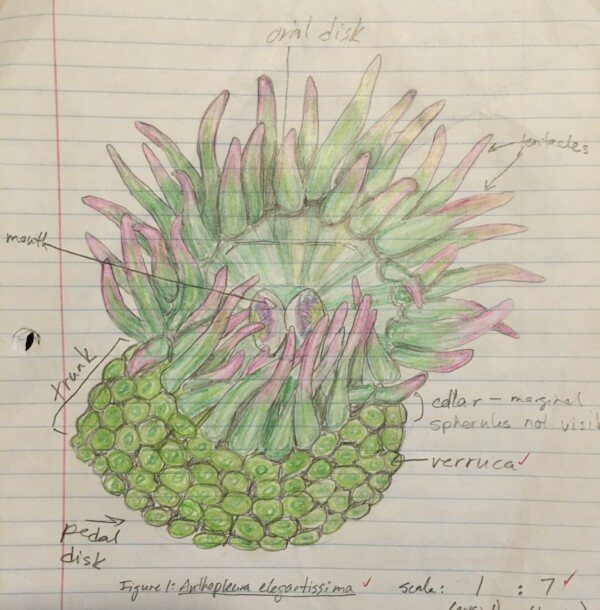 oral disk
tentacles
mouth
trunk
collar - marginal
spherules not visib
verruca
pedal
disk
Figure 1: Anthopleura elegantissima scale: 1 : 7